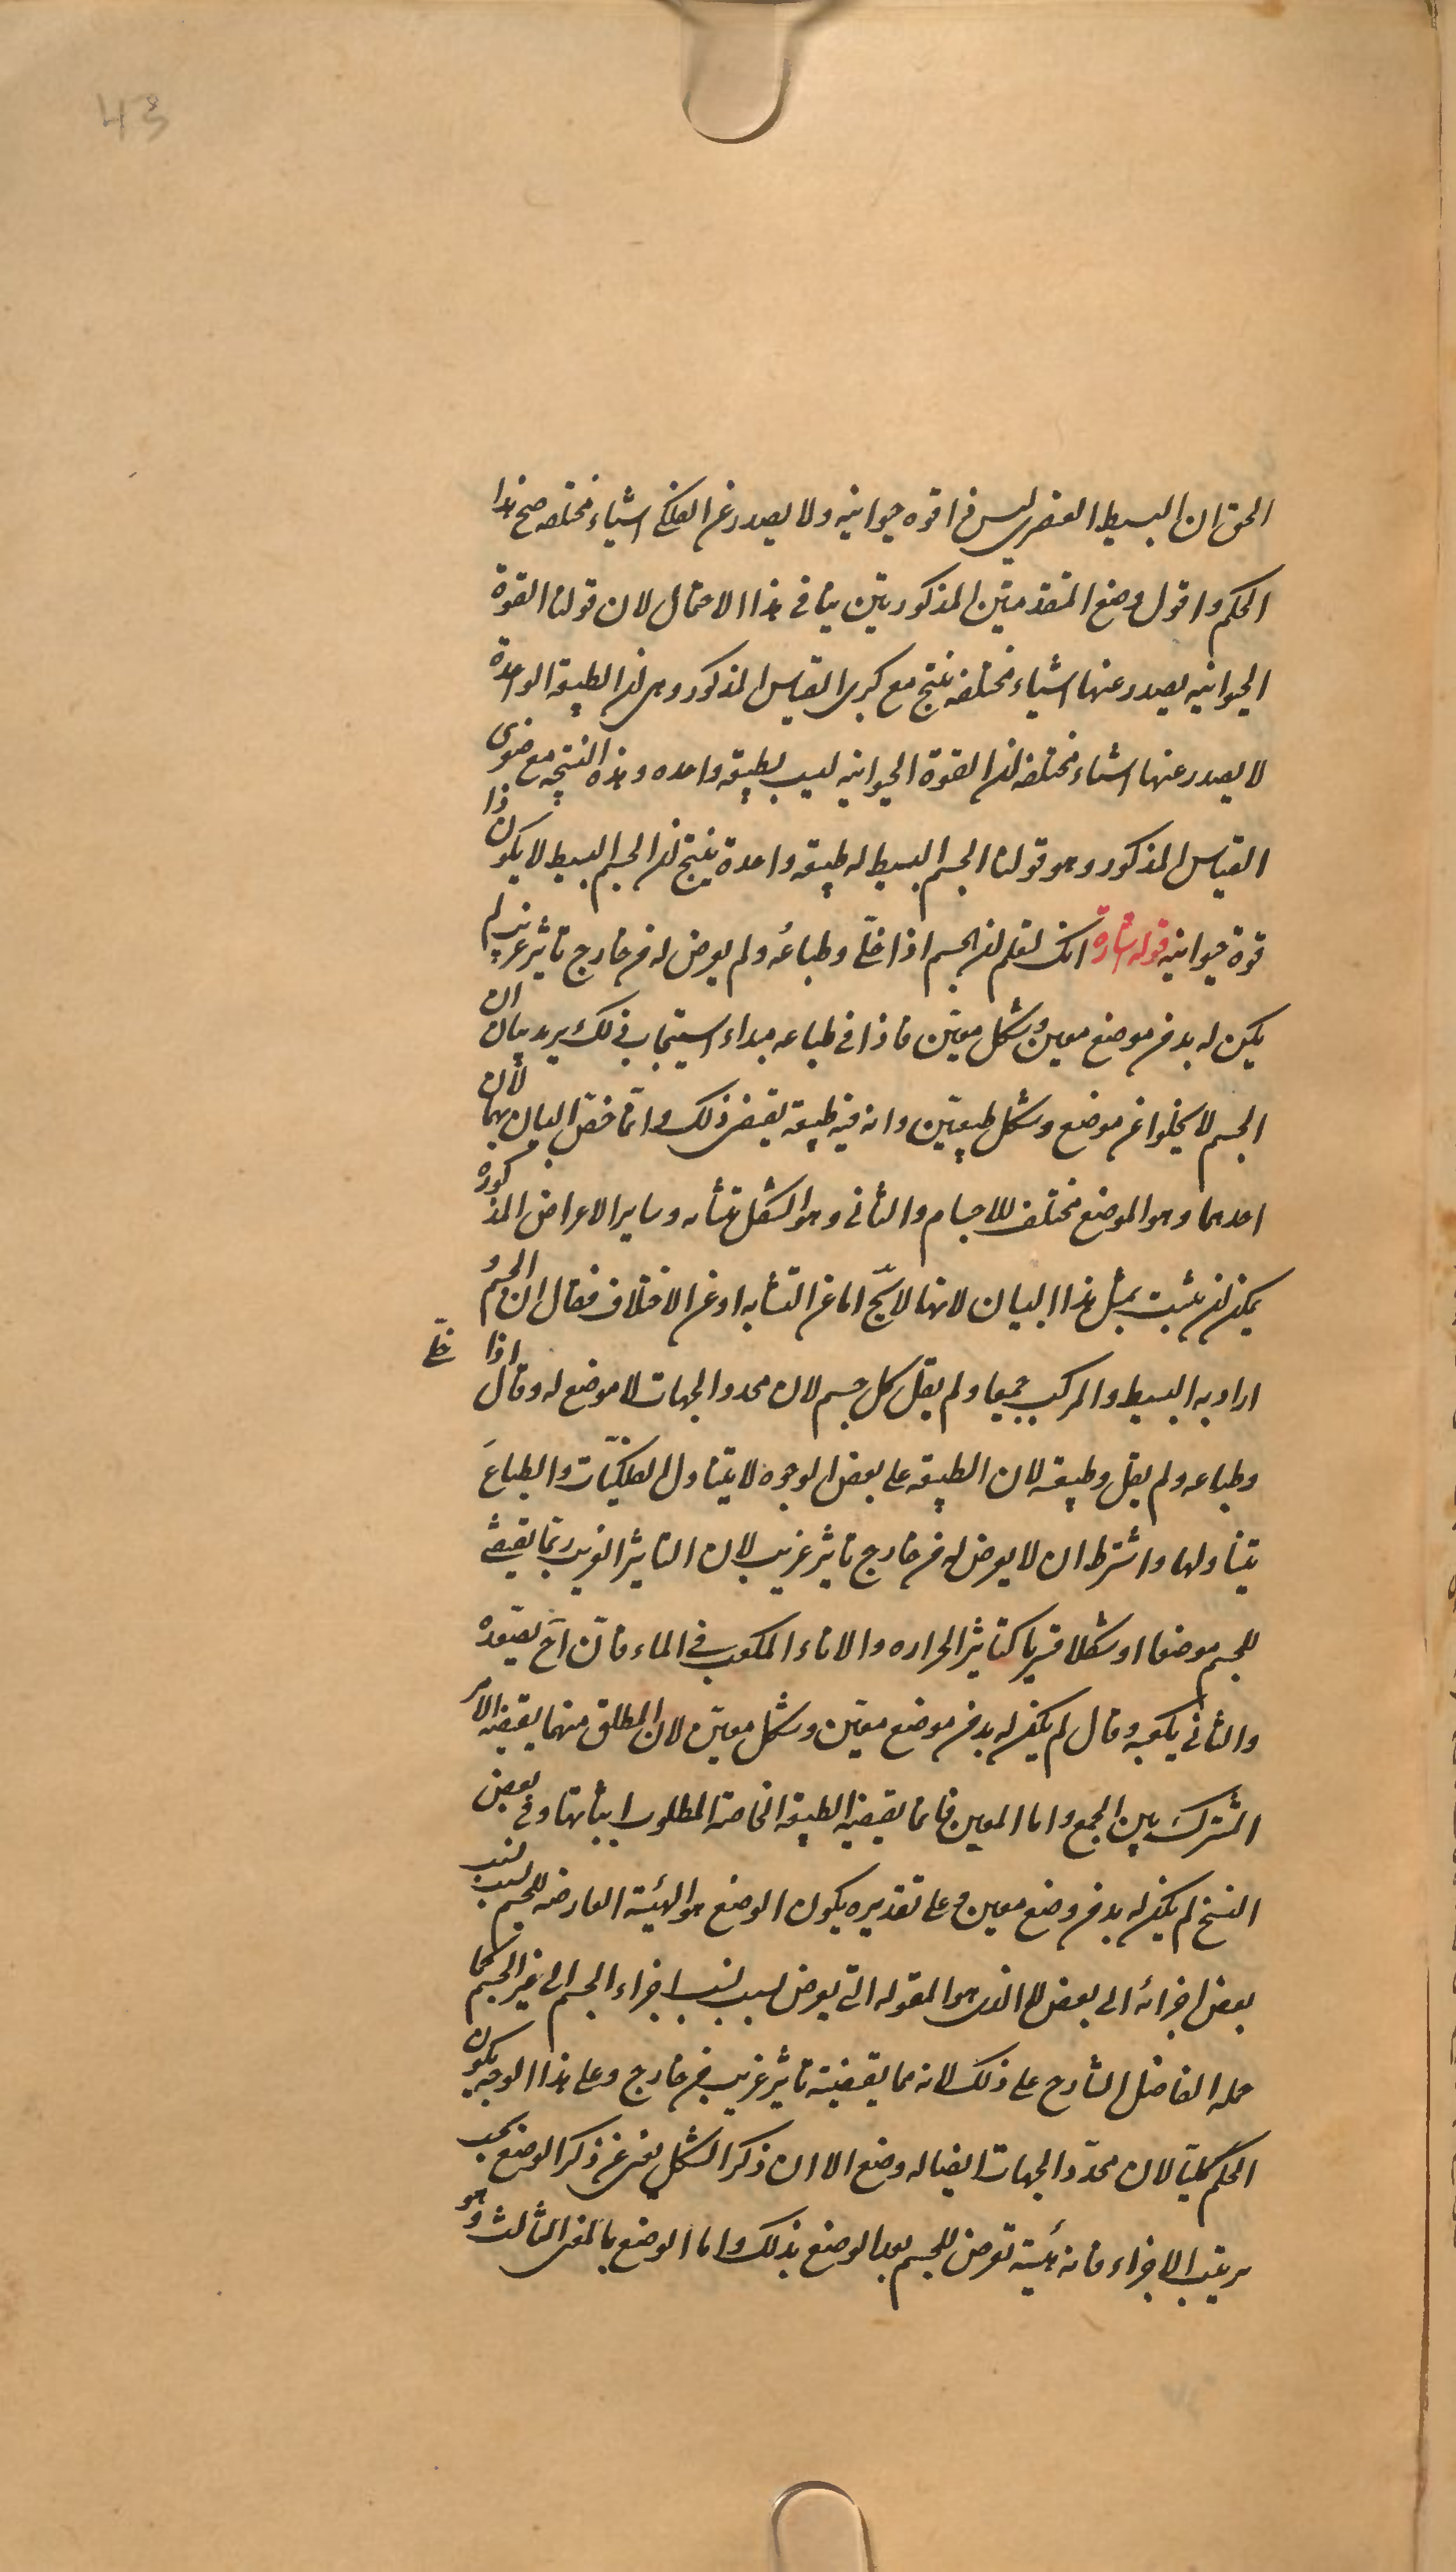 43
الحق ان البسيط العنصرى ليس ذا قوه حيوانيه ولا يصدر عن الفلكى اشياء مختلفه صح هذا
الحكم واقول وضع المقدمتين المذكورتين ينافى هذا الاحتمال لان قولنا القوة
الحيوانيه يصدر عنها اشياء مختلفه ينتج مع كبرى القياس المذكور وهى ان الطبيعة الواحدة
لا يصدر عنها اشياء مختلفه ان القوة الحيوانيه ليست بطبيعه واحده وهذه النتيجه مع صغرى
القياس المذكور وهو قولنا الجسم البسيط له طبيعه واحدة ينتج ان الجسم البسيط لا يكون ذا
قوة حيوانيه قوله اشارة انك لتعلم ان الجسم اذا خلّى وطباعه ولم يعرض له من خارج تاثير غريب لم
يكن له بد من موضع معين وشكل معيّن فاذا فى طباعه مبداء استيجاب ذلك يريد بيان ان
الجسم لا يخلوا عن موضع وشكل طبيعيّن وان فيه طبيعه يقتضى ذلك وانّما خصّ البيان بهما لأن
احدهما وهو الموضع مختلف للاجسام والثانى وهو الشكل متشابه وساير الاعراض المذكوره
يمكن ان يثبت بمثل هذا البيان لانها لا تخّ اما عن التشابه او عن الاختلاف فقال ان الجسم و
اراد به البسيط والمركب جميعا ولم يقل كل جسم لان محدد الجهات لا موضع له وقال اذا خلّى
وطباعه ولم يقل وطبيعته لان الطبيعه على بعض الوجوه لا يتناول الفلكيّات والطباعَ
يتناولها واشترط ان لا يعرض له من خارج تاثير غريب لان التاثير الغريب ربّما يقتضى
للجسم موضعا او شكلا قسريا كتاثير الحراره والاناء المكعب فى الماء فانّ احَ يصعده
والثانى يكعبه وقال لم يكن له بد من موضع معيّن وشكل معيّن لان المطلق منهما يقتضيه الامر
المشترك بين الجميع واما المعين فانما يقتضيه الطبيعه الخاصة المطلوب اثباتها وفى بعض
النسخ لم يكن له بد من وضع معين وعلى تقديره يكون الوضع هو الهيئة العارضه للجسم بسبب نسب
بعض اجزائه الى بعض لا الذى هو المقوله التى يعرض بسبب نسب اجزاء الجسم الى غير الجسم كما
حمله الفاضل الشارح على ذلك لانه مما يقتضيه تاثير غريب من خارج وعلى هذا الوجه يكون
الحكم كليّا لان محدّد الجهات ايضا له وضع الا ان ذكر الشكل يغنى عن ذكر الوضع بحسب
ترتيب الاجزاء فانه هيئة تعرض للجسم بعد الوضع بذلك واما الوضع بالمعنى الثالث وهو